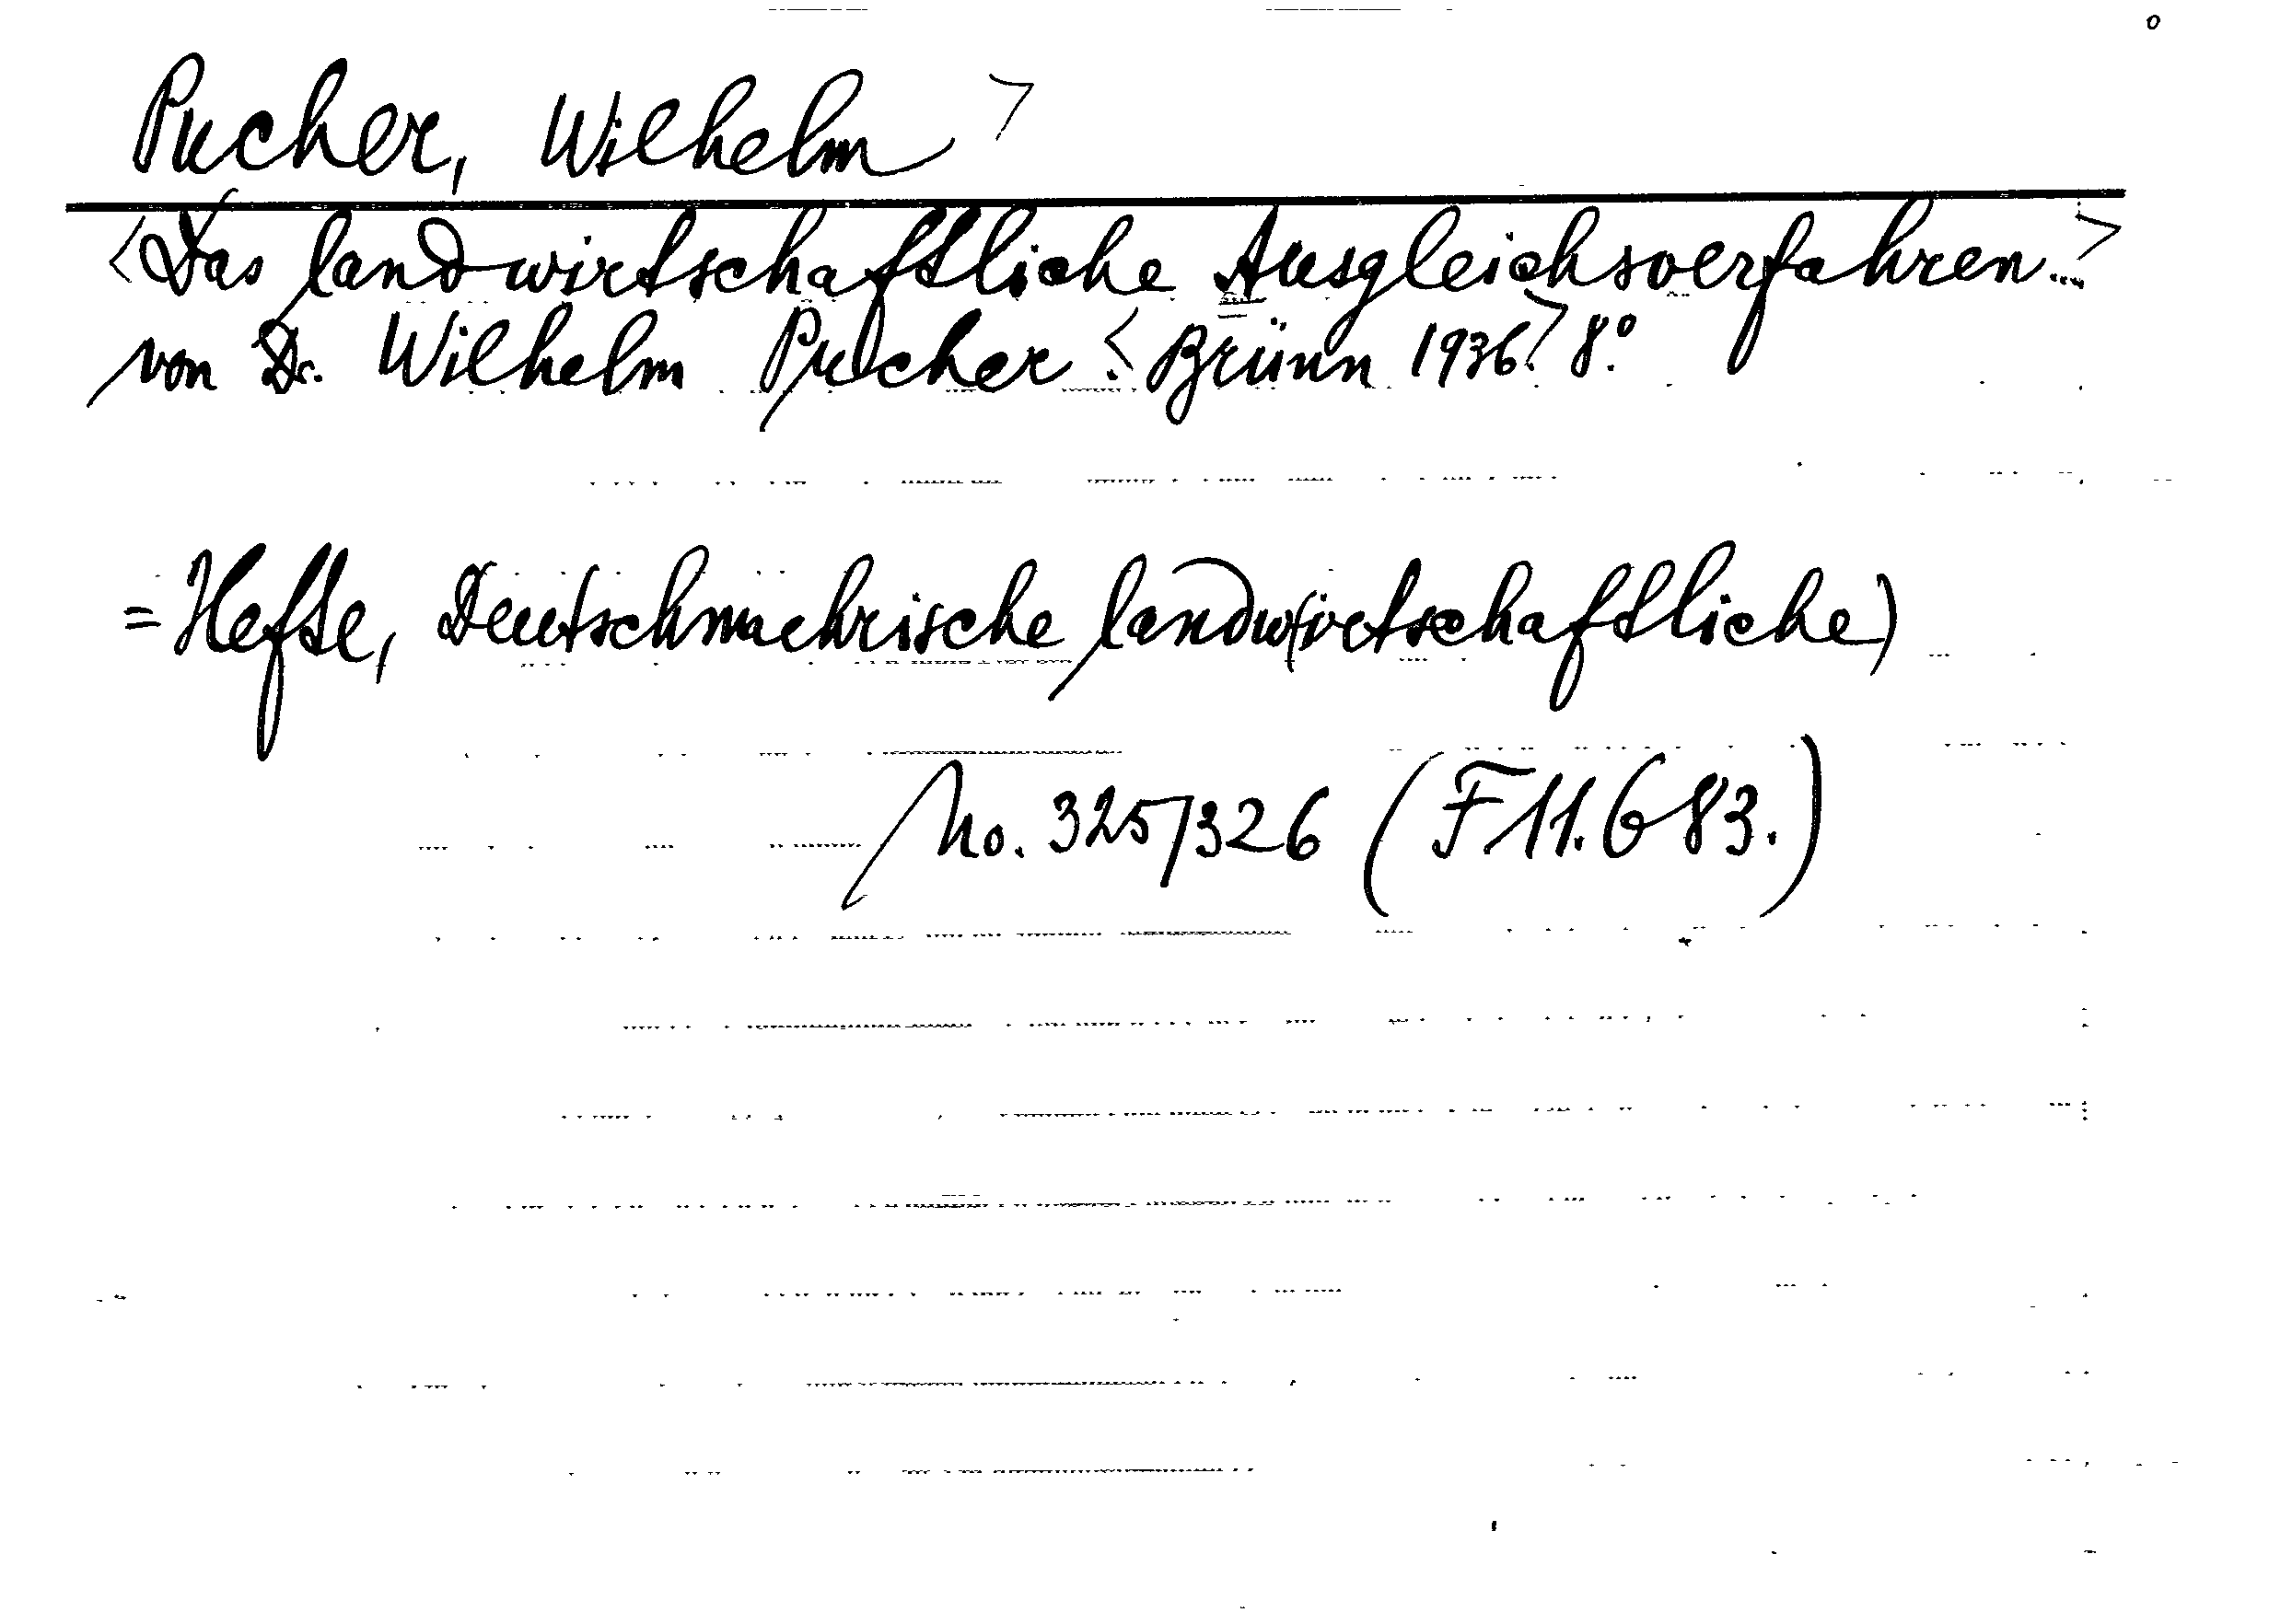 Pucher, Wilhelm >
<Das landwirtschaftliche Ausgleichsverfahren.>
von Dr. Wilhelm Pucher. <Brünn 1936.> 8°.
=Hefte, Deutschmaehrische landw(irtschaftliche)
No. 325/326 (F11.683.)